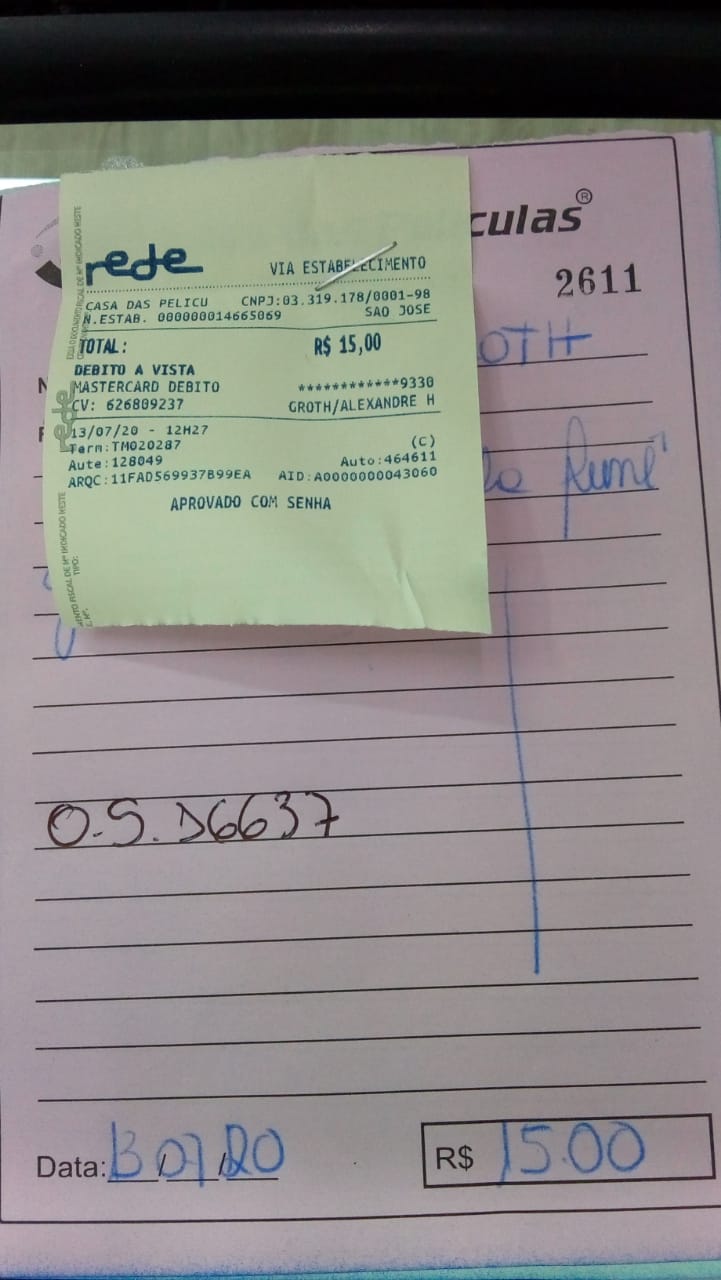 culas®
2611
OTH
rede VIA ESTABELECIMENTO
CASA DAS PELICU CNPJ:03.319.178/0001-98
N.ESTAB. 000000014665069 SAO JOSE
TOTAL: R$ 15,00
DEBITO A VISTA
MASTERCARD DEBITO ************9330
CV: 626809237 GROTH/ALEXANDRE H
13/07/20 - 12H27
Term:TM020287 (C)
Aute:128049 Auto:464611
ARQC:11FAD569937B99EA AID:A0000000043060
APROVADO COM SENHA
rede
O.S. D6637
Data: 13/07/20 R$ 15.00